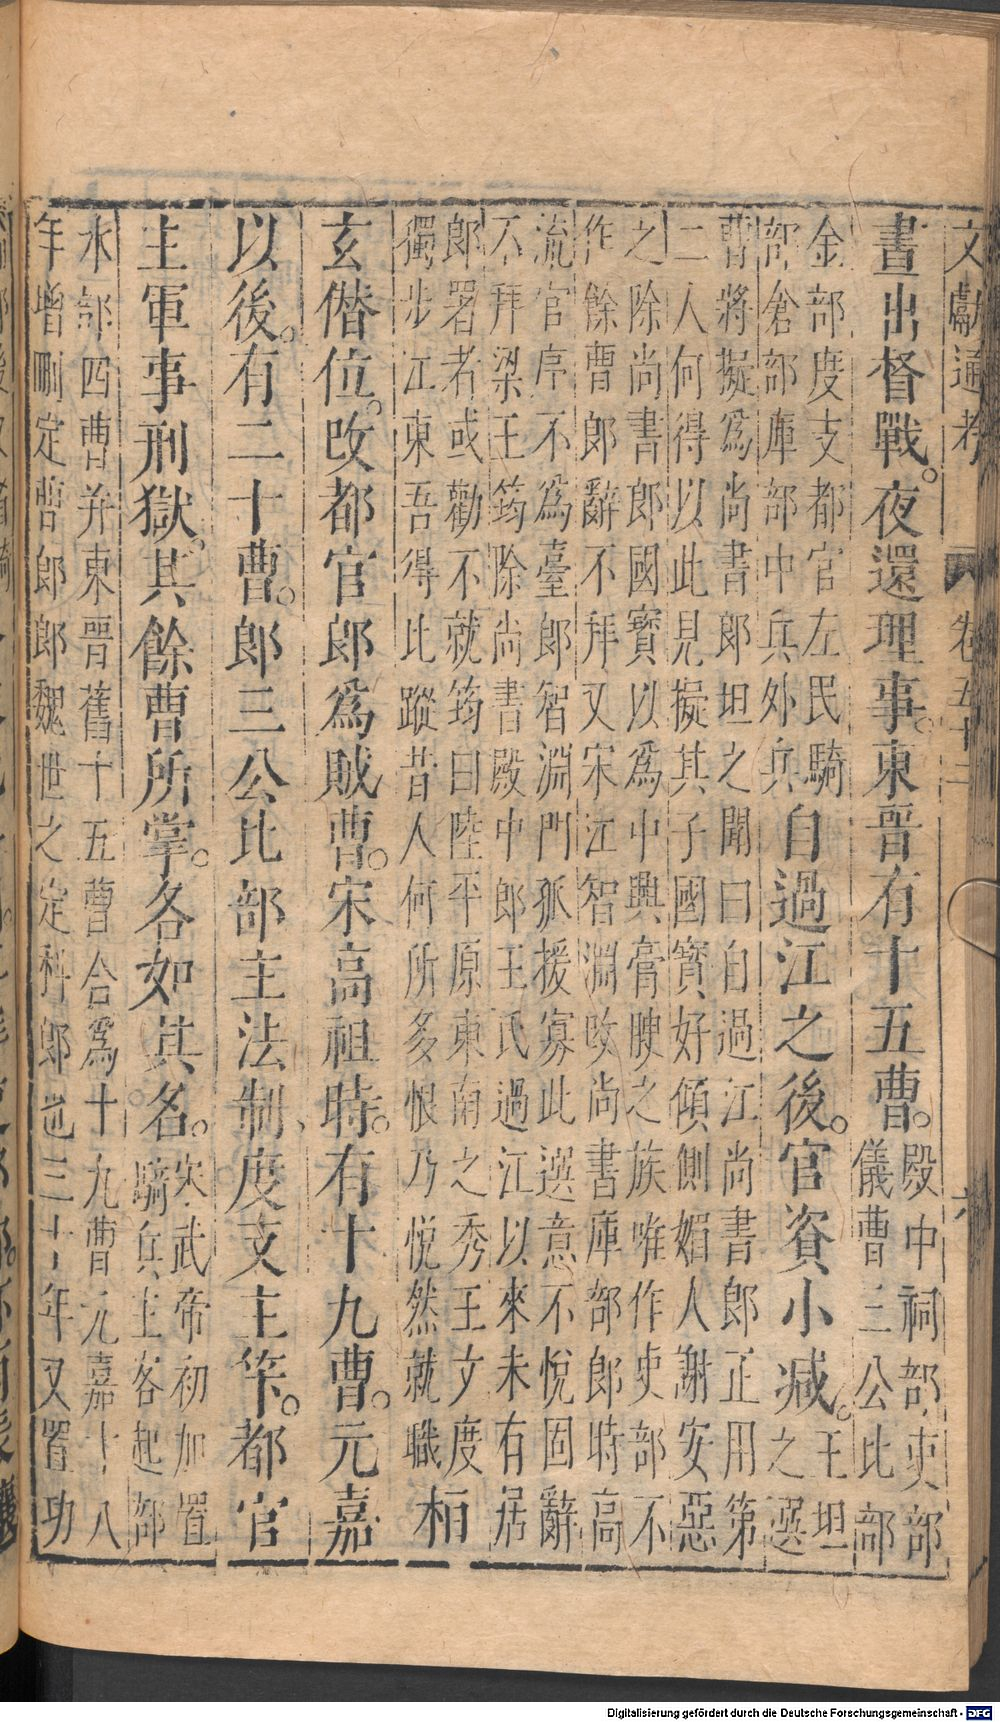 文獻通考 卷五十二 六
晝出督戰。夜還理事。東晉有十五曹。
殿中祠部吏部
儀曹三公比部
金部度支都官左民騎
部倉部庫部中兵外兵
自過江之後。官資小减。
王坦
之選
曹將擬爲尚書郎坦之聞曰自過江尚書郎正用第
二人何得以此見擬其子國寳好傾側媚人謝安惡
之除尚書郎國寳以爲中興膏腴之族唯作吏部不
作餘曹郎辭不拜又宋江智淵改尚書庫部郎時高
流官序不爲臺郎智淵門孤援寡此選意不悅固辭
不拜梁王筠除尚書殿中郎王氏過江以來未有居
郎署者或勸不就筠曰陸平原東南之秀王文度
獨步江東吾得比蹤昔人何所多恨乃悅然就職
桓
玄僭位。改都官郎爲賊曹。宋高祖時。有十九曹。元嘉
以後。有二十曹。郎三公比部主法制、度支主筭。都官
主軍事刑獄。其餘曹所掌。各如其名。
宋武帝初加置
騎兵主客起部
水部四曹并東晉舊十五曹合爲十九曹元嘉十八
年增刪定曹郎郎魏世之定科郎也三十年又置功
Digitalisierung gefördert durch die Deutsche Forschungsgemeinschaft - DFG